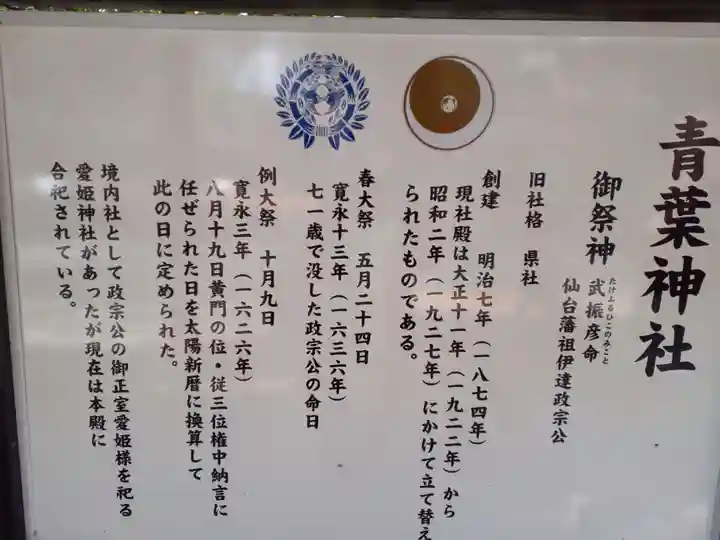 青葉神社
御祭神 武振彦命
たけふるひこのみこと
仙台藩祖伊達政宗公
旧社格 県社
創建 明治七年（一八七四年）
現社殿は大正十一年（一九二二年）から
昭和二年（一九二七年）にかけて立て替え
られたものである。
春大祭 五月二十四日
寛永十三年（一六三六年）
七一歳で没した政宗公の命日
例大祭 十月九日
寛永三年（一六二六年）
八月十九日黄門の位・従三位権中納言に
任ぜられた日を太陽新暦に換算して
此の日に定められた。
境内社として政宗公の御正室愛姫様を祀る
愛姫神社があったが現在は本殿に
合祀されている。